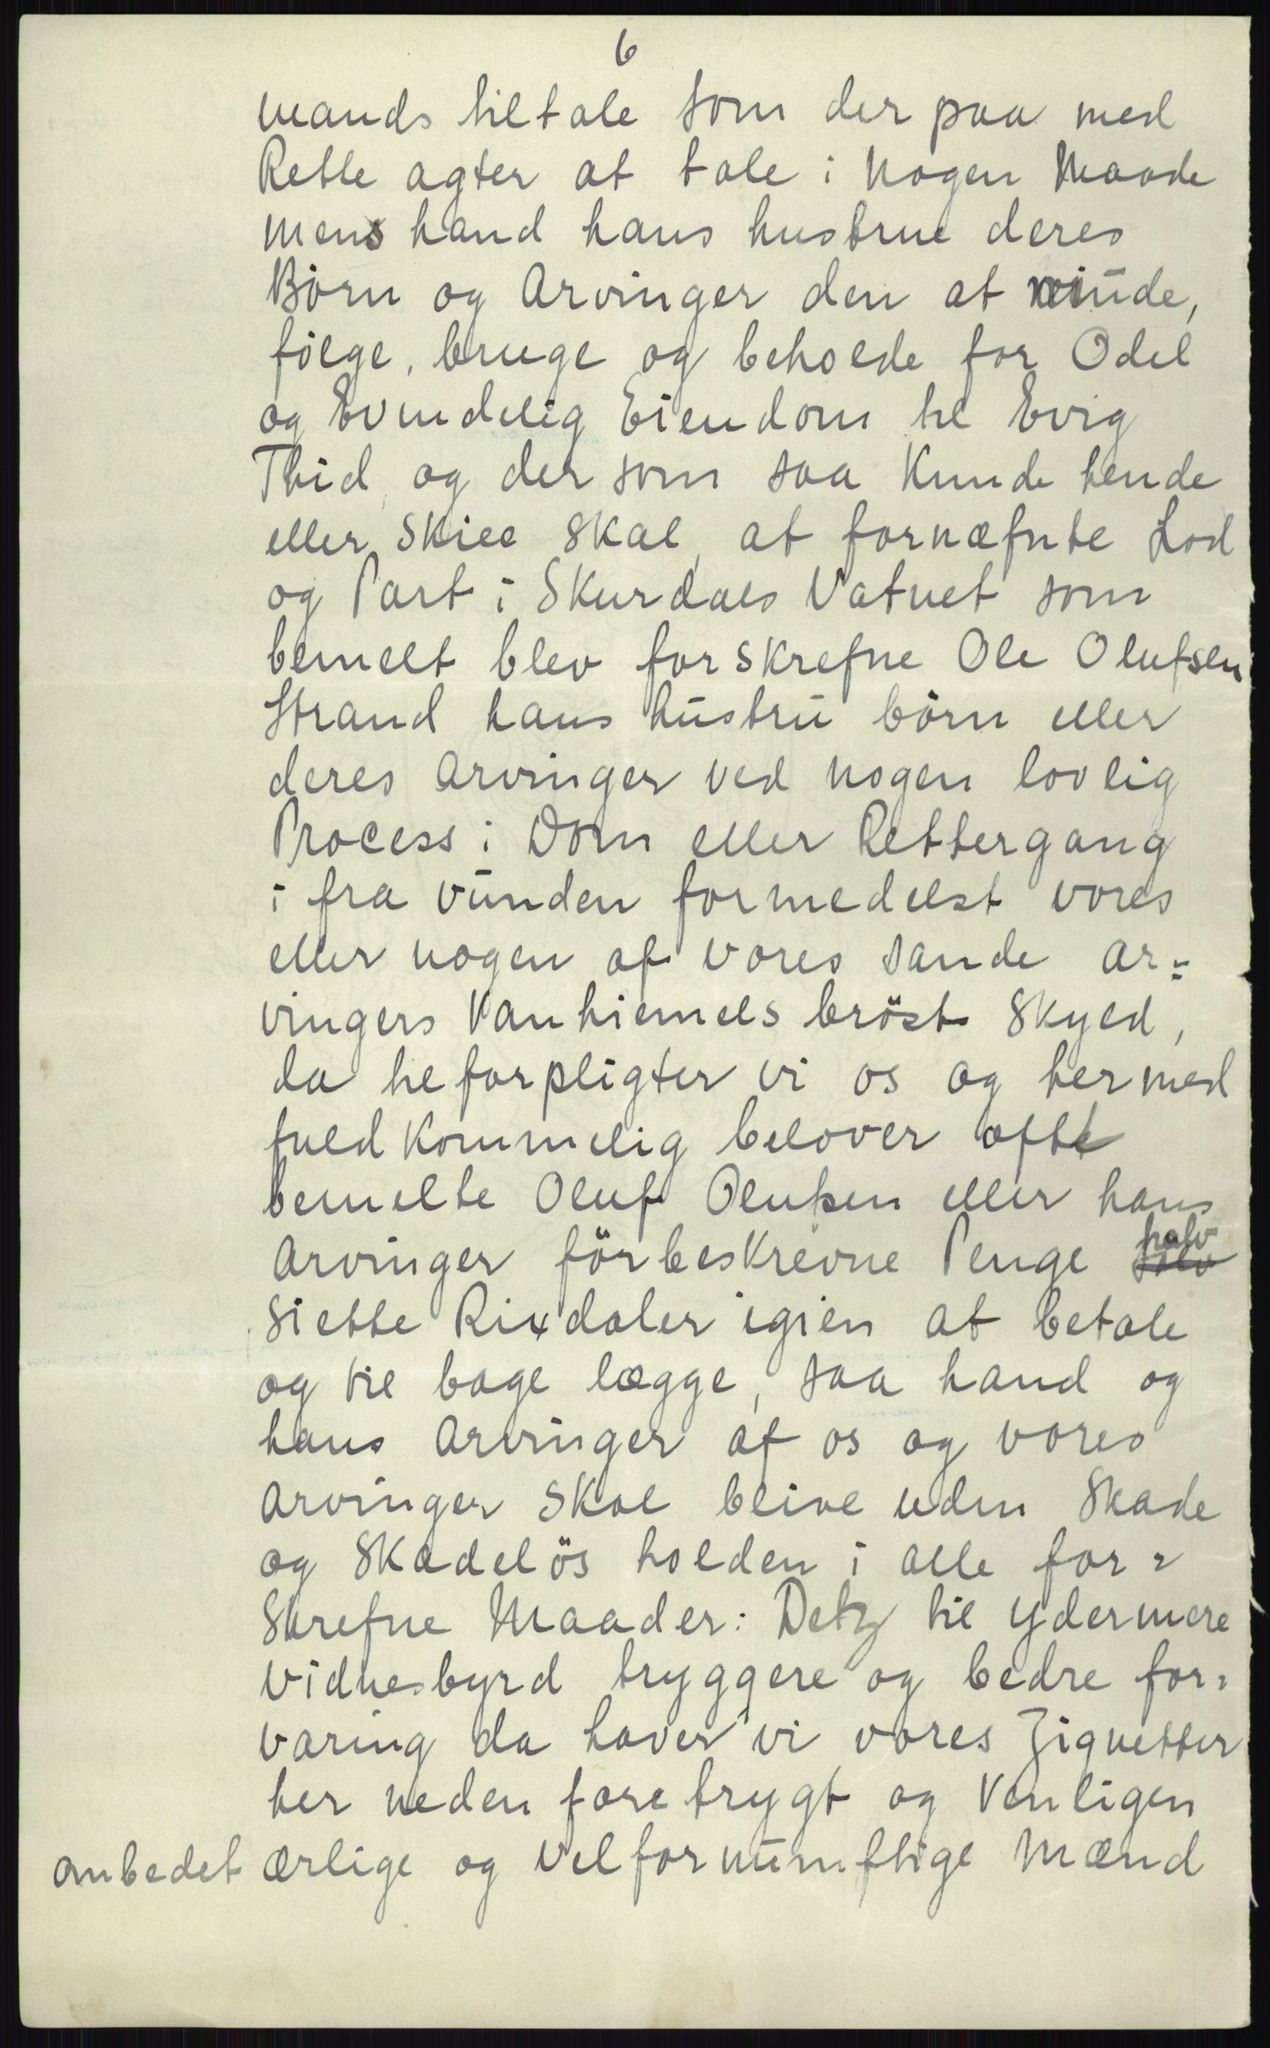 6
mands tiltale som der paa med
Rette agter at tale i Nogen Maade
mens hand hans hustrue deres
Börn og Arvinger den at niude,
fölge, bruge og beholde for Odel
og Evindelig Eiendom til Evig
Thid, og der som saa Kunde hende
eller Skiee Skal, at fornæfnte Lod
og Part i Skurdals Vatnet som
bemelt blev for skrefne Ole Olufsen
Strand hans hustru börn eller
deres Arvinger ved nogen lovlig
Process i Dom eller Rettergang
i fra vunden formedelst vores
eller nogen af vores sande Ar=
vingers Vanhiemels bröst Skyld,
da tilforpligter vi os og her med
fuld Kommelig belover oftt
bemelte Oluf Olufsen eller hans
Arvinger förbeskrevne Penge halv
Siette Rixdaler igien at betale
og til bage lægge, saa hand og
hans Arvinger af os og vores
Arvinger Skal blive uden Skade
og Skadelös holden i alle for=
Skrefne Maader: Detz til ydermere
vidnesbyrd tryggere og bedre for=
varing da haver vi vores Zignetter
her neden fore trygt og Venligen
ombedet ærlige og velfornumftige Mænd